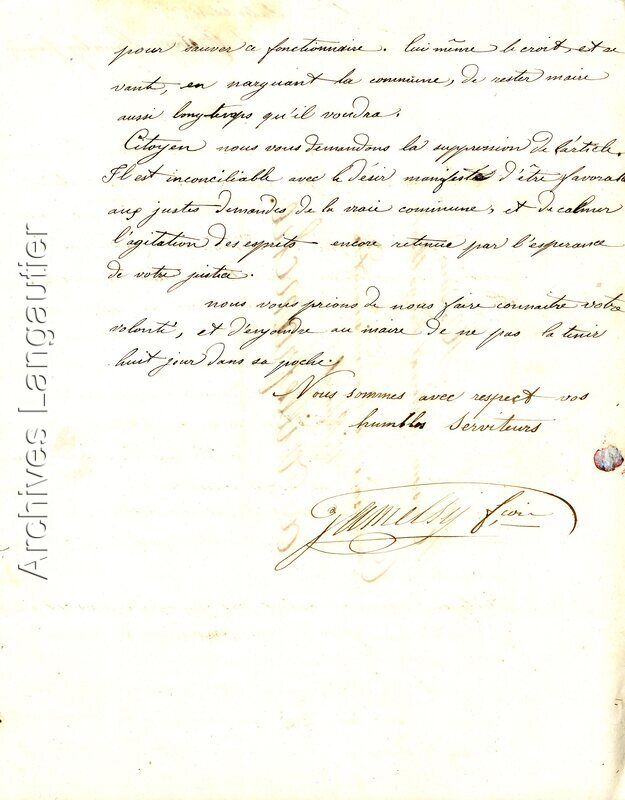 pour sauver ce fonctionnaire. lui même le croit, et se
vante, en narguant la commune, de rester maire
aussi longtemps qu'il voudra.
Citoyen nous vous demandons la suppression de l'article.
Il est inconciliable avec le désir manifesté d'être favorable
aux justes demandes de la vraie commune, et de calmer
l'agitation des esprits encore retenue par l'esperance
de votre justice.
nous vous prions de nous faire connaître votre
volonté, et d'enjoindre au maire de ne pas la tenir
huit jour dans sa poche.
Nous sommes avec respect vos
humbles Serviteurs
Archives Langautier